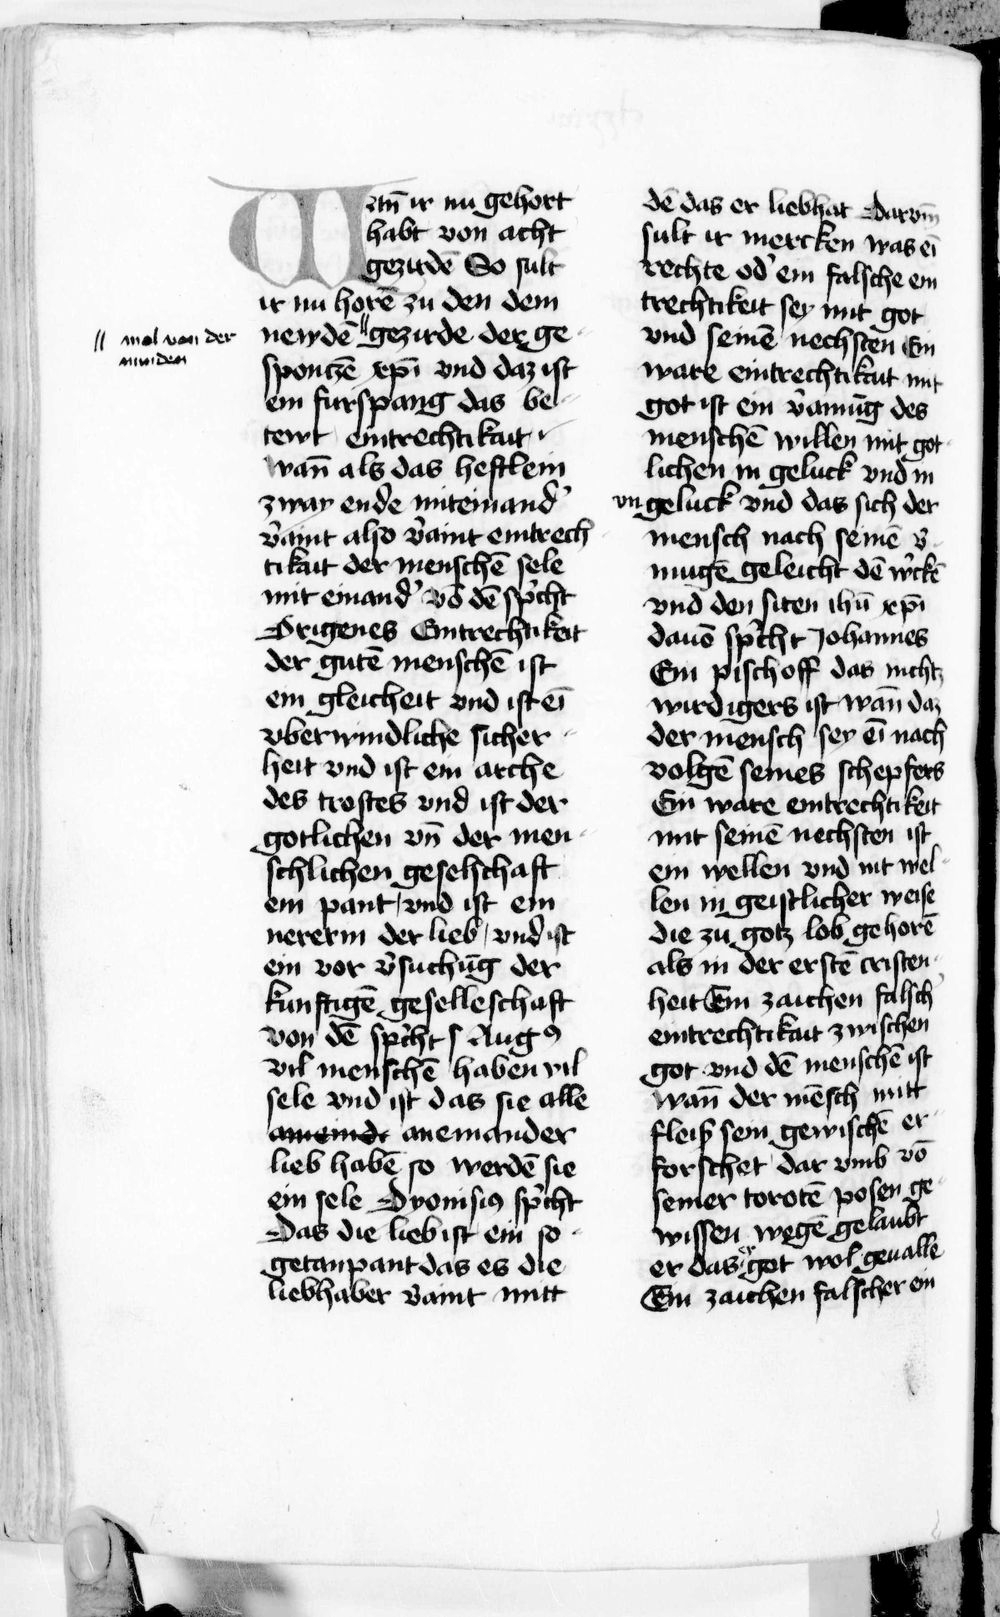 Wañ ir nu gehort
habt von acht
gezirdē So sult
ir nu horē zu den dem
newdē ‖ gezirde der ge-
sponczē xp̄i vnd daz ist
ein furspang das be-
tewt eintrechtikait
wañ als das heftlein
zway ende miteinand'
v̄aint also v̄aint eintrech-
tikait der menschē sele
mit einand' vō dē sp̃cht
Origenes Eintrechtikeit
der gutē menschē ist
ein gleicheit vnd ist eī
vberwindliche sicher-
heit vnd ist ein arche
des trostes vnd ist der
gotlichen vñ der men-
schlichen geselschaft
ein pant / vnd ist ein
nererin der lieb / vnd ist
ein vor v̄suchūg der
kunftigē geselleschaft
von dē sp̃cht S Augꝰ
vil menschē haben vil
sele vnd ist das sie alle
aneinander
lieb habē so werdē sie
ein sele Dyonisiꝰ sp̃cht
Das die lieb ist ein so-
getan pant das es die
liebhaber v̄aint mitt
‖ mal von der
mīnden
dē das er liebhat Darvm̄
sult ir mercken was eī
rechte od' ein falsche ein
trechtikeit sey mit got
vnd seinē nechsten Ein
ware eintrechtikait mit
got ist ein v̄ainūg des
menschē willen mit got-
lichen in geluck vnd in
vngeluck vnd das sich der
mensch nach seinē v̄-
mugē geleicht dē w̃ckē
vnd den siten ihū xp̄i
dauō sp̃cht Johannes
Ein pischoff das nichtz
wirdigers ist wañ daz
der mensch sey eī nach
volgē seines schepfers
Ein ware eintrechtikeit
mit seinē nechsten ist
ein wellen vnd nit wel-
len in geistlicher weise
die zu gotz lob gehorē
als in der erstē cristen-
heit Ein zaichen falsch'
eintrechtikait zwischen
got vnd dē menschē ist
wañ der mēsch mitt
fleiß sein gewischē er-
forschet dar vmb vō
seiner torotē posen ge-
wissen wegē gelaubt
er das er got wol geualle
Ein zaichen falscher ein